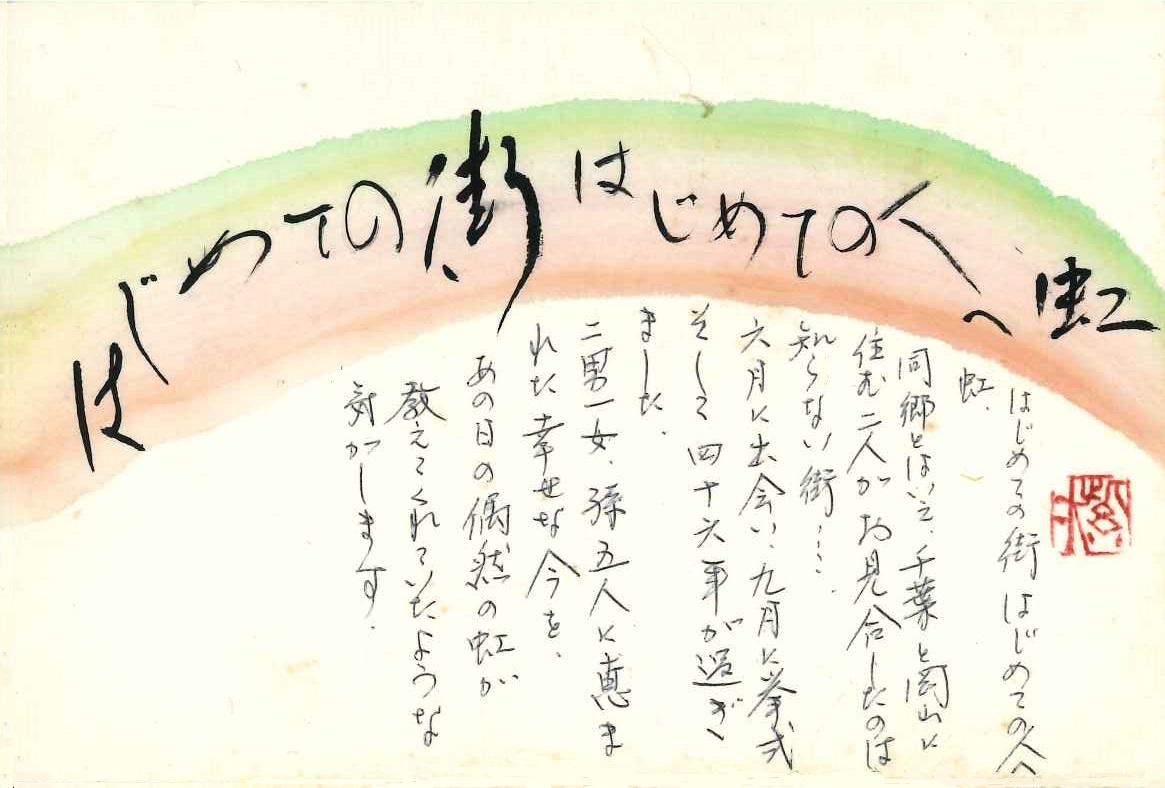 はじめての街はじめての人へ虹
はじめての街はじめての人へ
虹.
同郷とはいえ、千葉と岡山に
住む二人がお見合したのは
知らない街…….
六月に出会い、九月に挙式
そして四十六年が過ぎ
ました.
二男一女、孫五人に恵ま
れた幸せな今を、
あの日の偶然の虹が
教えてくれていたような
気がします.